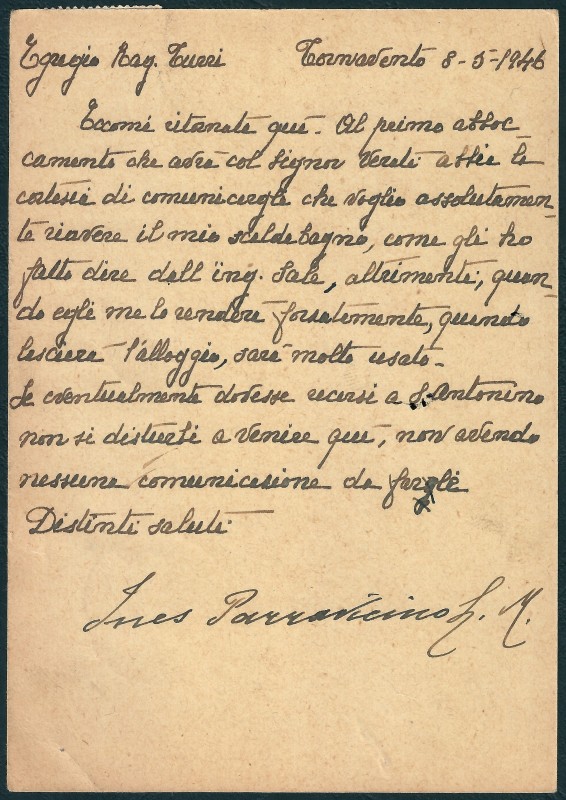 Egregio Rag. Turri Tornavento 8-5-1946
Eccomi ritornata quì. Al primo abboc
camento che avrà col Signor Verati abbia la
cortesia di comunicargli che voglio assolutamen-
te riavere il mio scaldabagno, come gli ho
fatto dire dall'ing. Sala, altrimenti, quan-
do egli me lo renderà forzatamente, quando
lascierà l'alloggio, sarà molto usato.
Se eventualmente dovesse recarsi a S. Antonino
non si disturbi a venire quì, non avendo
nessuna comunicazione da fargli
Distinti saluti.
Ines Parravicino L. M.